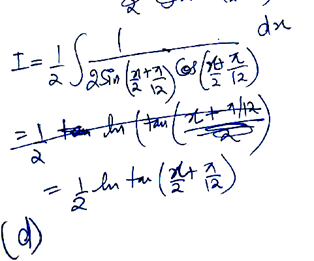 I = 1/2 ∫ 1/(2 Sin (x/2 + π/12) Cos (x/2 + π/12)) dx
= 1/2 ln (tan (x + π/12 / 2))
= 1/2 ln tan (x/2 + π/12)
(d)